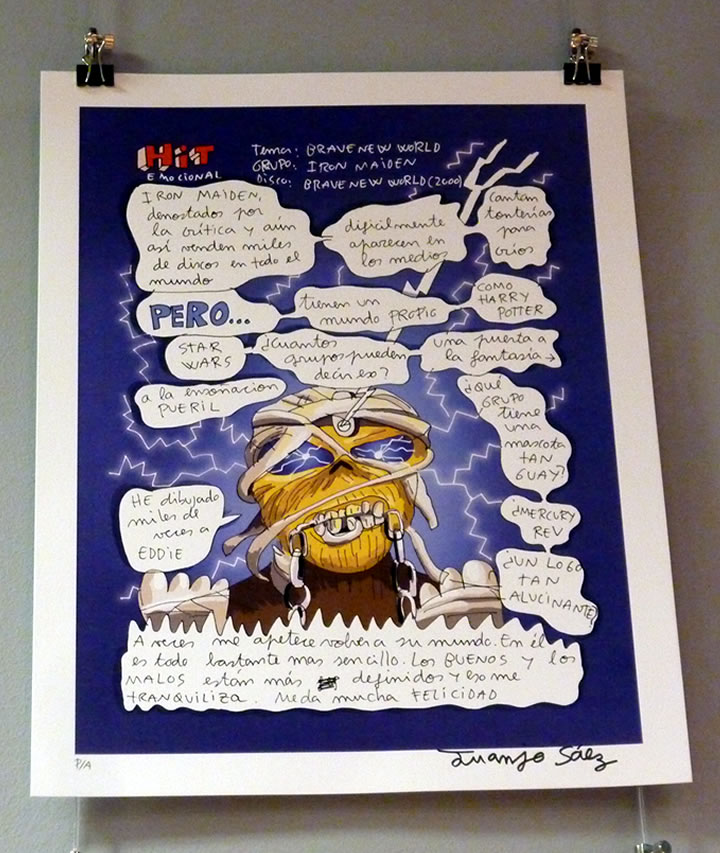 HiT
EMOCIONAL
Tema: BRAVE NEW WORLD
GRUPO: IRON MAIDEN
Disco: BRAVE NEW WORLD (2000)
IRON MAIDEN,
denostados por
la crítica y aún
así venden miles
de discos en todo el
mundo
dificilmente
aparecen en
los medios
cantan
tonterías
para
críos
PERO...
tienen un
mundo PROPIO
COMO
HARRY
POTTER
STAR
WARS
¿Cuantos
grupos pueden
decir eso?
una puerta a
la fantasía→
a la ensoñacion
PUERIL
¿QUÉ
GRUPO
tiene
una
mascota
TAN
GUAY?
HE dibujado
miles de
veces a
EDDIE
¿MERCURY
REV
¿UN LOGO
TAN
ALUCINANTE?
A veces me apetece volver a su mundo. En él
es todo bastante mas sencillo. Los BUENOS y los
MALOS están más definidos y eso me
TRANQUILIZA. Me da mucha FELICIDAD
P/A
Juanjo Sáez